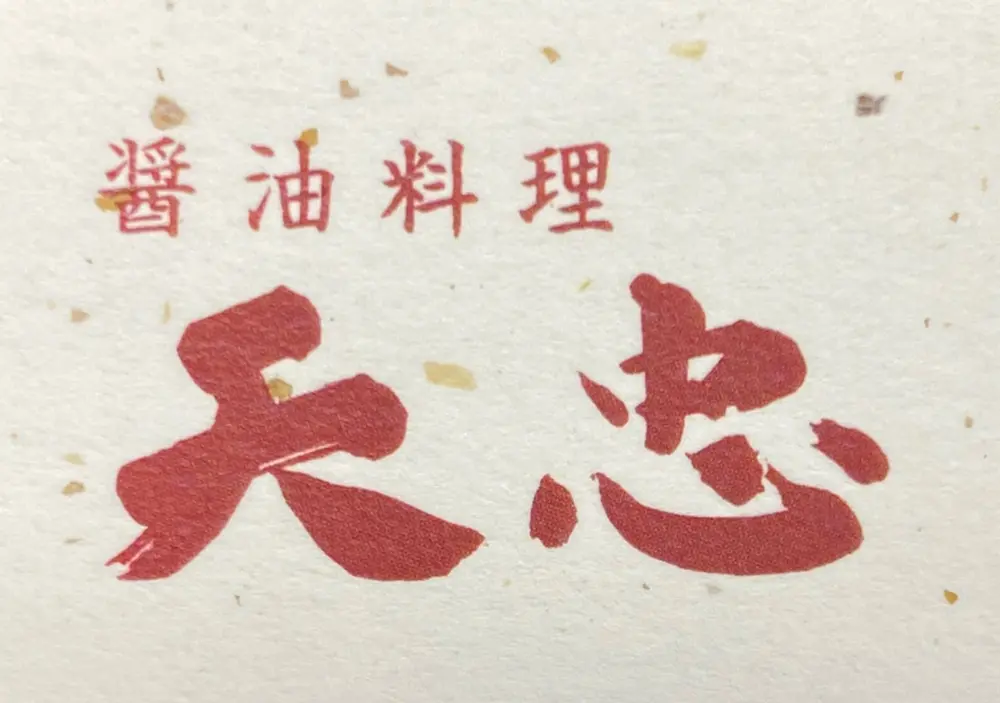 醤油料理
天忠